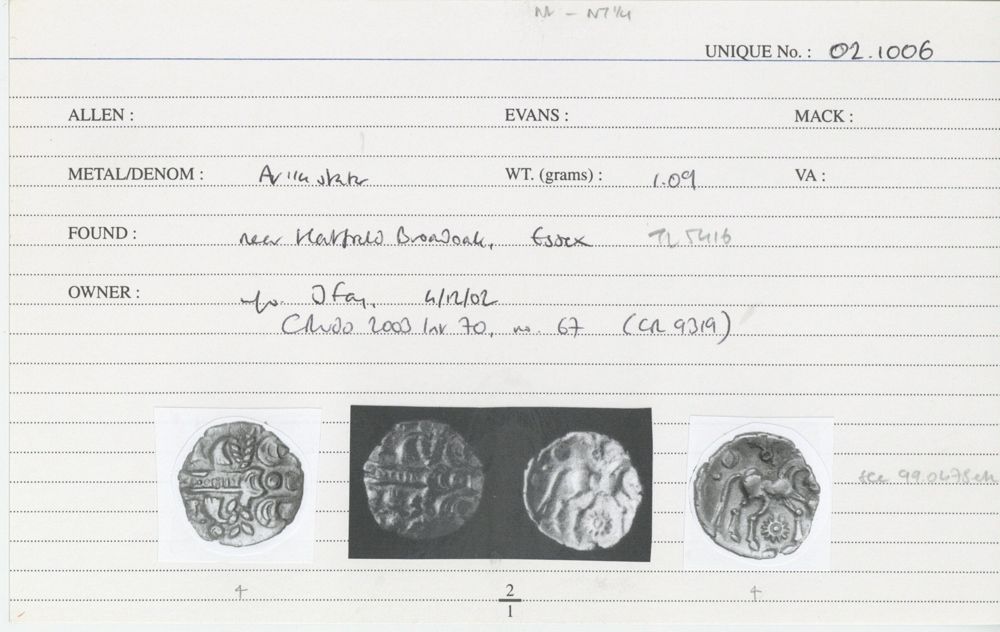 UNIQUE No. : 02.1006
ALLEN : EVANS : MACK :
METAL/DENOM : stater WT. (grams) : 1.09 VA :
FOUND : near Hatfield Broadoak, Essex TL 5416
OWNER : J Fay, 4/12/02
2003 Inv 70, no. 67 (CR 9319)
see 99.0475
4 2 4
1